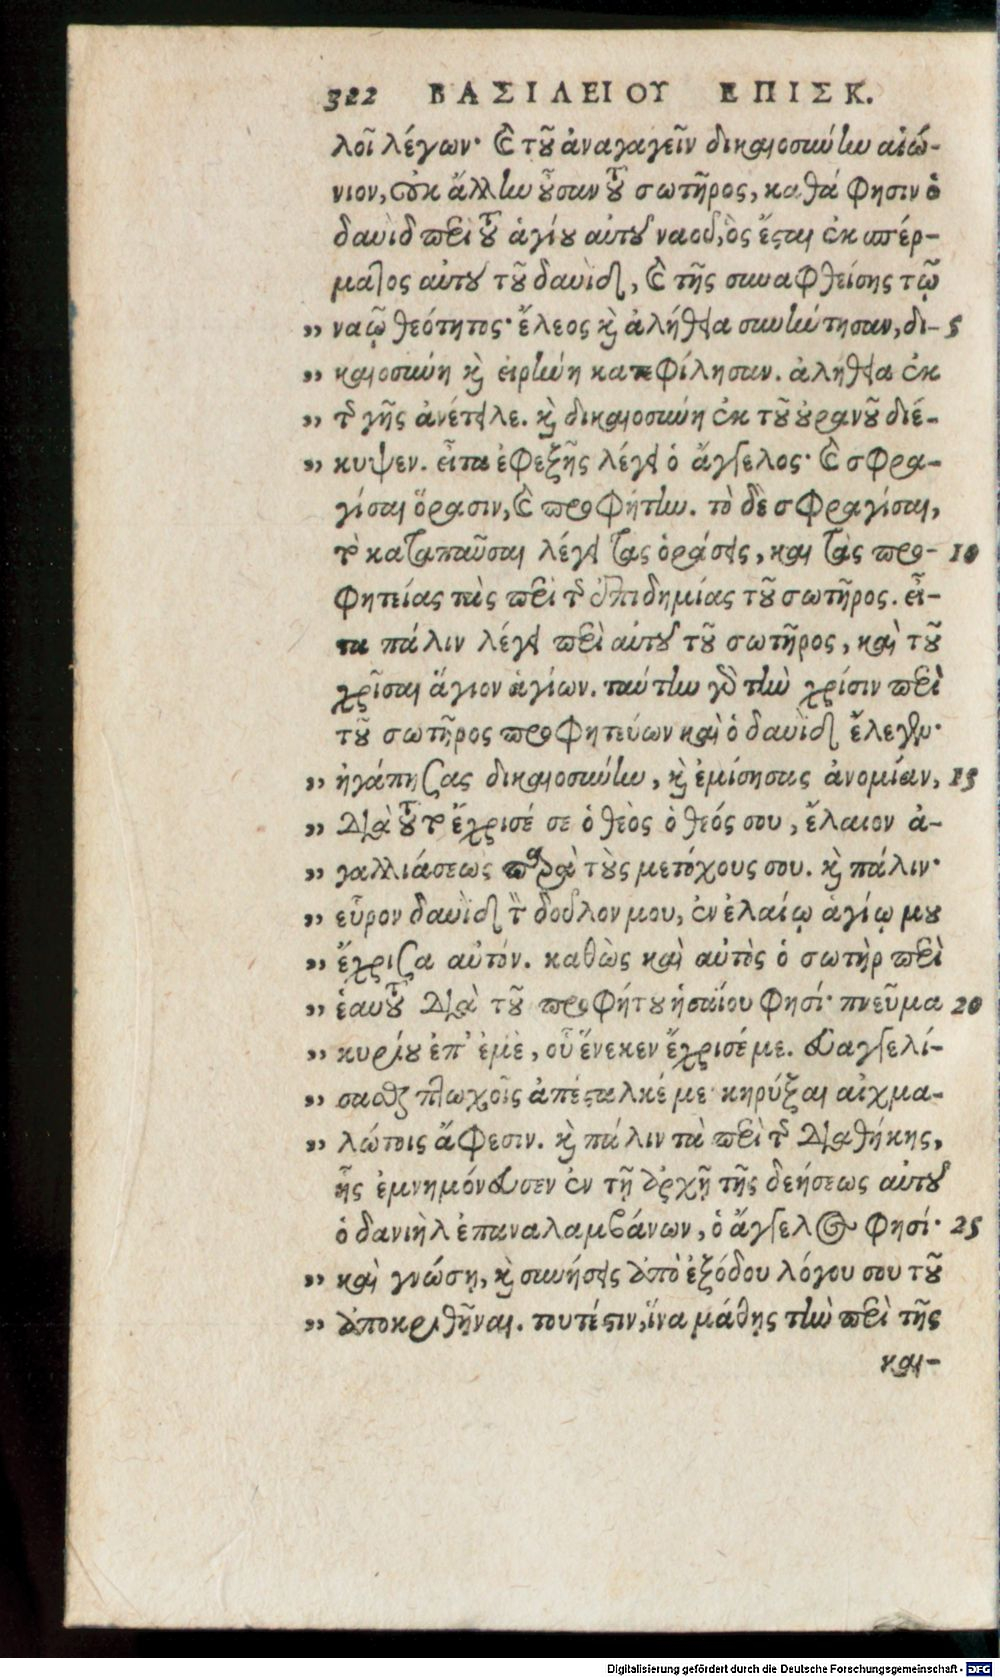 322 ΒΑΣΙΛΕΙΟΥ ΕΠΙΣΚ.
λοῖ λέγων· καὶ τοῦ ἀναγαγεῖν δικαιοσύνην αἰώ-
νιον, οὐκ ἄλλην οὖσαν τοῦ σωτῆρος, καθά φησιν ὁ
δαυὶδ περὶ τοῦ ἁγίου αὐτοῦ ναοῦ, ὃς ἔσται ἐκ σπέρ-
ματος αὐτοῦ τοῦ δαυὶδ, καὶ τῆς συναφθείσης τῷ
„ ναῷ θεότητος· ἔλεος καὶ ἀλήθεια συνήντησαν, δι- 5
„ καιοσύνη καὶ εἰρήνη κατεφίλησαν. ἀλήθεια ἐκ
„ τῆς γῆς ἀνέτειλε. καὶ δικαιοσύνη ἐκ τοῦ οὐρανοῦ διέ-
„ κυψεν. εἶτα ἐφεξῆς λέγει ὁ ἄγγελος· καὶ σφρα-
γίσαι ὅρασιν, καὶ προφήτην. τὸ δὲ σφραγίσαι,
τὸ καταπαῦσαι λέγει τὰς ὁράσεις, καὶ τὰς προ- 10
φητείας τὰς περὶ τῆς ἐπιδημίας τοῦ σωτῆρος. εἶ-
τα πάλιν λέγει περὶ αὐτοῦ τοῦ σωτῆρος, καὶ τοῦ
χρῖσαι ἅγιον ἁγίων. ταύτην γὰρ τὴν χρίσιν περὶ
τοῦ σωτῆρος προφητεύων καὶ ὁ δαυὶδ ἔλεγεν·
„ ἠγάπησας δικαιοσύνην, καὶ ἐμίσησας ἀνομίαν, 15
„ διὰ τοῦτο ἔχρισέ σε ὁ θεὸς ὁ θεός σου, ἔλαιον ἀ-
„ γαλλιάσεως παρὰ τοὺς μετόχους σου. καὶ πάλιν·
„ εὗρον δαυὶδ τὸν δοῦλον μου, ἐν ἐλαίῳ ἁγίῳ μου
„ ἔχρισα αὐτόν. καθὼς καὶ αὐτὸς ὁ σωτὴρ περὶ
„ ἑαυτοῦ διὰ τοῦ προφήτου ἡσαΐου φησί· πνεῦμα 20
„ κυρίου ἐπ’ ἐμὲ, οὗ ἕνεκεν ἔχρισέ με. εὐαγγελί-
„ σασθαι πτωχοῖς ἀπέσταλκέ με κηρύξαι αἰχμα-
„ λώτοις ἄφεσιν. καὶ πάλιν τὰ περὶ τῆς διαθήκης,
ἧς ἐμνημόνευσεν ἐν τῇ ἀρχῇ τῆς δεήσεως αὐτοῦ
ὁ δανιὴλ ἐπαναλαμβάνων, ὁ ἄγγελος φησί· 25
„ καὶ γνώσῃ, καὶ συνήσεις ἀπὸ ἐξόδου λόγου σου τοῦ
„ ἀποκριθῆναι. τουτέστιν, ἵνα μάθῃς τὴν περὶ τῆς
και-
Digitalisierung gefördert durch die Deutsche Forschungsgemeinschaft - DFG